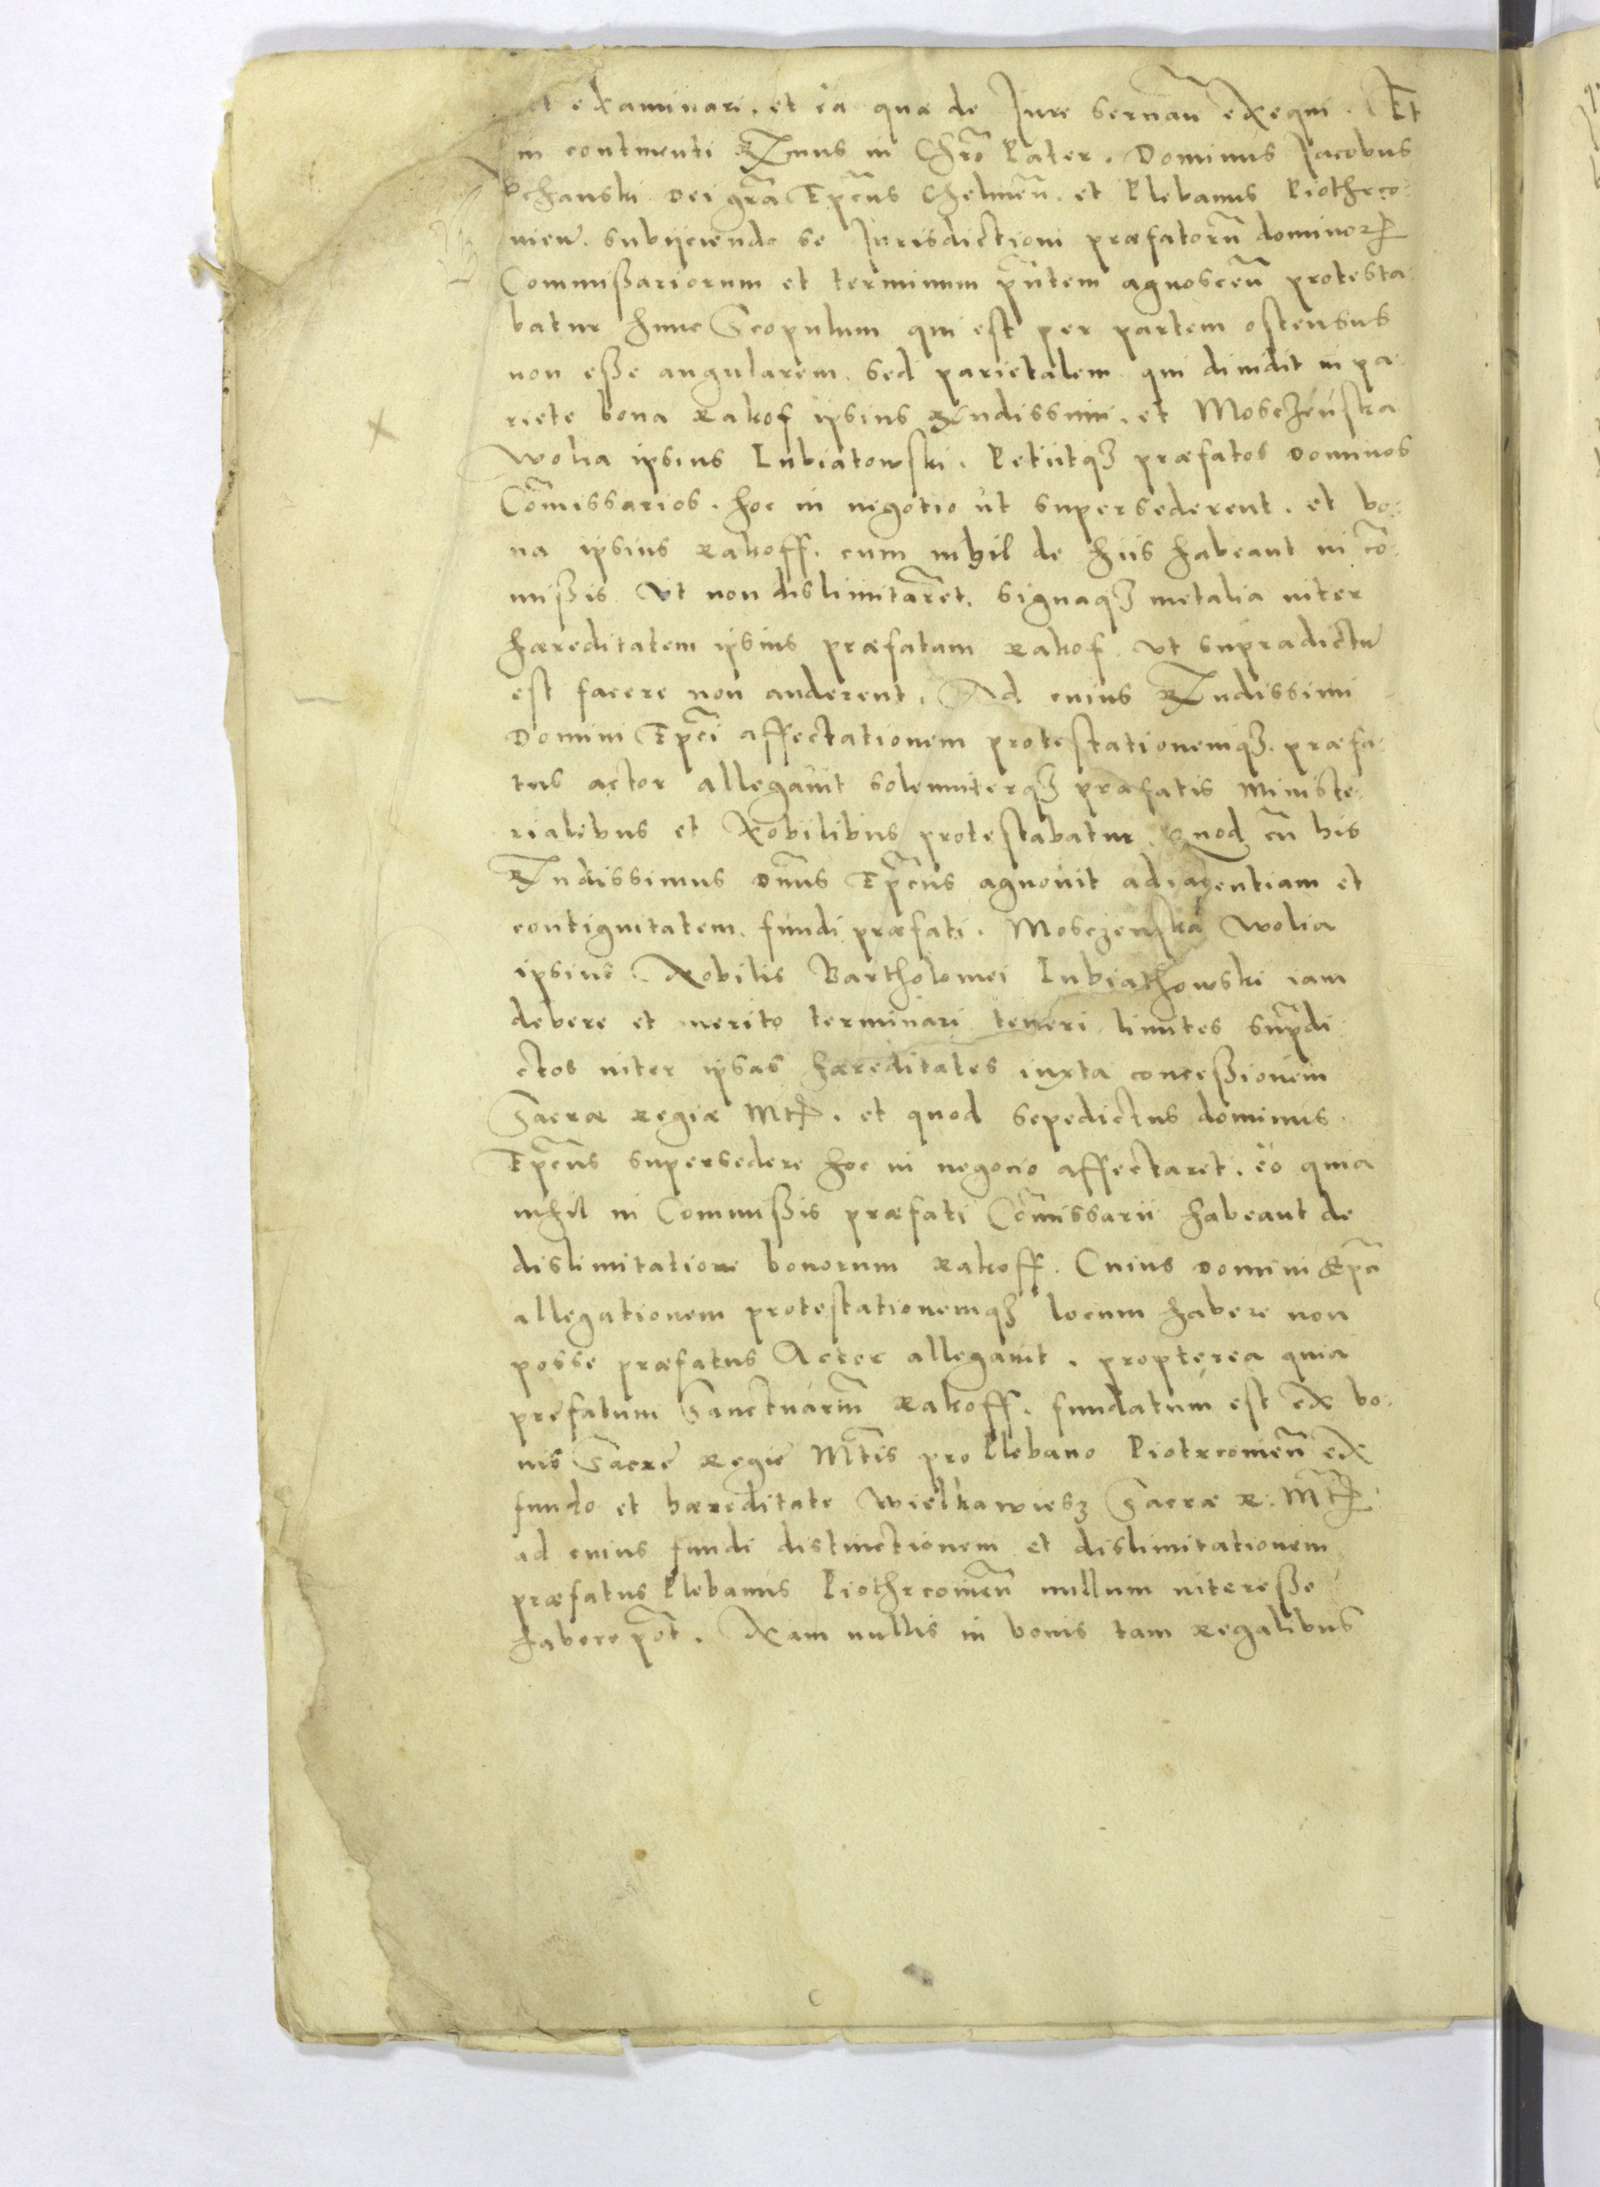 et examinari. et ea quæ de Jure seruañ exequi. Et
in continenti Rx̄mus in Chr̄o Pater. Dominus Jacobus
Vchanski Dei gr̄a Ep̄cus Chelmeñ. et Plebanus Piothrco-
vieñ. subijciendo se Jurisdictioni præfatorū dominorꝝ
Commißariorum et terminum pn̄tem agnosceñ protesta
batur hunc Scopulum qui est per partem ostensus
non eße angularem. sed parietalem qui diuidit in pa-
riete bona Rakof ipsius Rx̄ndissimi. et Mosczenska
Wolia ipsius Lubiatowski. Petiitqꝫ præfatos Dominos
Cōmissarios. hoc in negotio ut supersederent. et bo-
na ipsius Rakoff. cum nihil de hiis habeant in cō-
mißis Vt non dislimitarēt. signaqꝫ metalia inter
hæreditatem ipsius præfatam Rakof. Vt supradictū
est facere non auderent. Ad cuius Rx̄ndissimi
Domini Ep̄ci affectationem protestationemqꝫ. præfa-
tus actor allegauit solemniterqꝫ præfatis Ministe-
rialibus et Nobilibus protestabatur. Quod cū his
Rx̄ndissimus Dn̄us Ep̄cus agnouit adiacentiam et
contiguitatem. fundi præfati. Mosczenska Wolia
ipsius Nobilis Bartholomei Lubiathowski iam
debere et merito terminari teneri limites sup̄di
ctos inter ipsas hæreditates iuxta conceßionem
Sacræ Regiæ Mtꝭ. et quod sepedictus dominus.
Ep̄cus supersedere hoc in negocio affectaret. eo quia
nihil in Commißis præfati Cōmissarii habeant de
dislimitatione bonorum Rakoff. Cuius Domini Ep̄ci
allegationem protestationemqꝫ locum habere non
posse præfatus Actor allegauit. propterea quia
prefatum Sanctuariū Rakoff. fundatum est ex bo-
nis Sacrę Regię Mt̄is pro Plebano Piotrcouieñ ex
fundo et hæreditate Wielkawiesz Sacræ R. Mt̄ꝭ
ad cuius fundi distinctionem et dislimitationem
præfatus Plebanus Piothrcouieñ nullum intereße
habere pōt. Nam nullis in bonis tam Regalibus